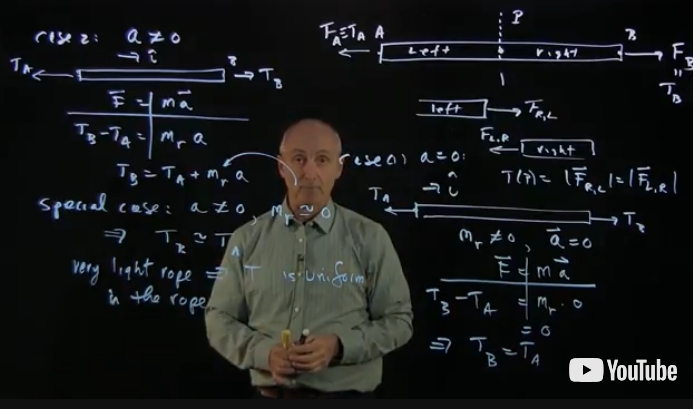 case 2: a ≠ 0
→ î
T_A B T_B
F⃗ = m a⃗
T_B - T_A = m_r a
T_B = T_A + m_r a
special case: a ≠ 0, m_r ≃ 0
⇒ T_B ≃ T_A
very light rope ⇒ T is uniform
in the rope
P
F_A = T_A A B
left right F_B
"
T_B
left F_R,L
F_L,R right
T(P) = |F⃗_R,L| = |F⃗_L,R|
case 1) a = 0:
→ î
T_A T_B
m_r ≠ 0, a⃗ = 0
F⃗ = m a⃗
T_B - T_A = m_r · 0
= 0
⇒ T_B = T_A
YouTube